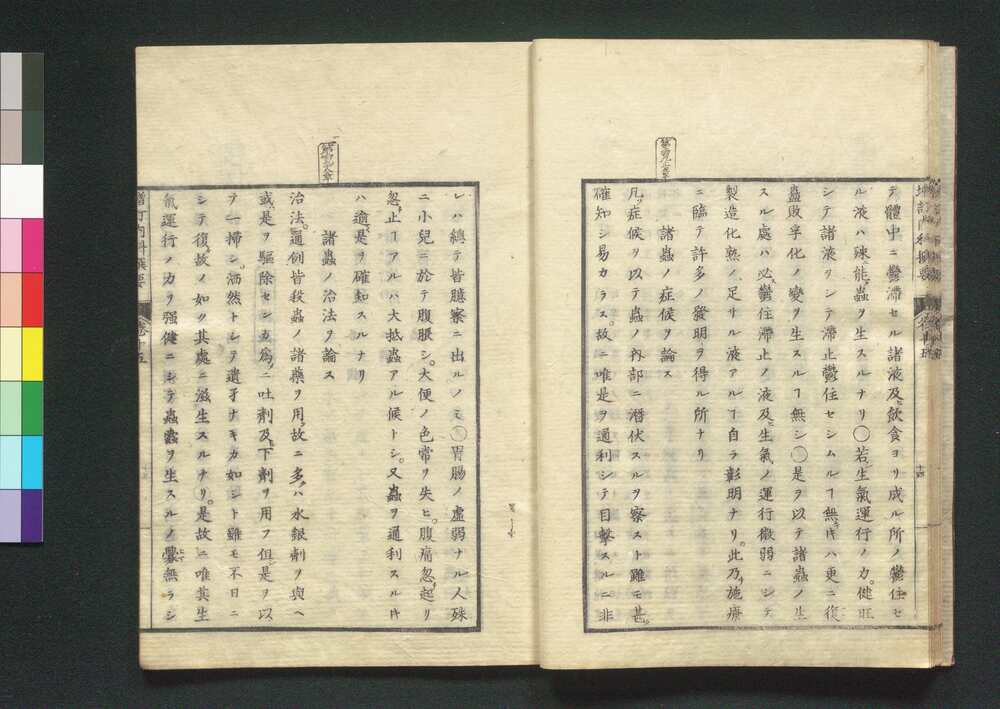 テ體中ニ鬱滯セル諸液及ヒ飮食ヨリ成ル所ノ鬱住セ
ル液ハ殊能蟲ヲ生スルナリ〇若シ生氣運行ノ力健旺
シテ諸液ヲシテ滯止鬱住セシムルヿ無キハ更ニ復
蟲敗孚化ノ變ヲ生スルヿ無シ〇是ヲ以テ諸蟲ノ生
スル處ハ必ス鬱住滯止ノ液及ヒ生氣ノ運行微弱ニシテ
製造化熟ノ足サル液アルヿ自ラ彰明ナリ。此乃施療
ニ臨テ許多ノ發明ヲ得ル所ナリ
諸蟲ノ症候ヲ論ス
凡ソ症候ヲ以テ蟲ノ內部ニ潛伏スルヲ察スト雖モ甚タ
確知シ易カラス。故ニ唯是ヲ通利シテ目擊スルニ非
レハ總テ皆臆察ニ出ルノミ〇胃腸ノ虛弱ナル人殊
ニ小兒ニ於テ腹脹シ。大便ノ色常ヲ失ヒ。腹痛忽起リ
忽止ヿアルハ大抵蟲アル候トシ。又蟲ヲ通利スルキ
ハ適ニ是ヲ確知スルナリ
諸蟲ノ治法ヲ論ス
治法。通例皆殺蟲ノ諸藥ヲ用フ故ニ多クハ水銀劑ヲ與ヘ
或ハ是ヲ驅除センカ爲ニ吐劑及ヒ下劑ヲ用フ但シ是ヲ以
テ一掃シ。洒然トシテ遺孑ナキカ如シト雖モ不日ニ
シテ復タ故ノ如ク其處ニ滋生スルナリ。是故ニ唯其生
氣運行ノ力ヲ强健ニシテ蟲蠧ヲ生スルノ釁無ラシ
增訂內科撰要
卷十五